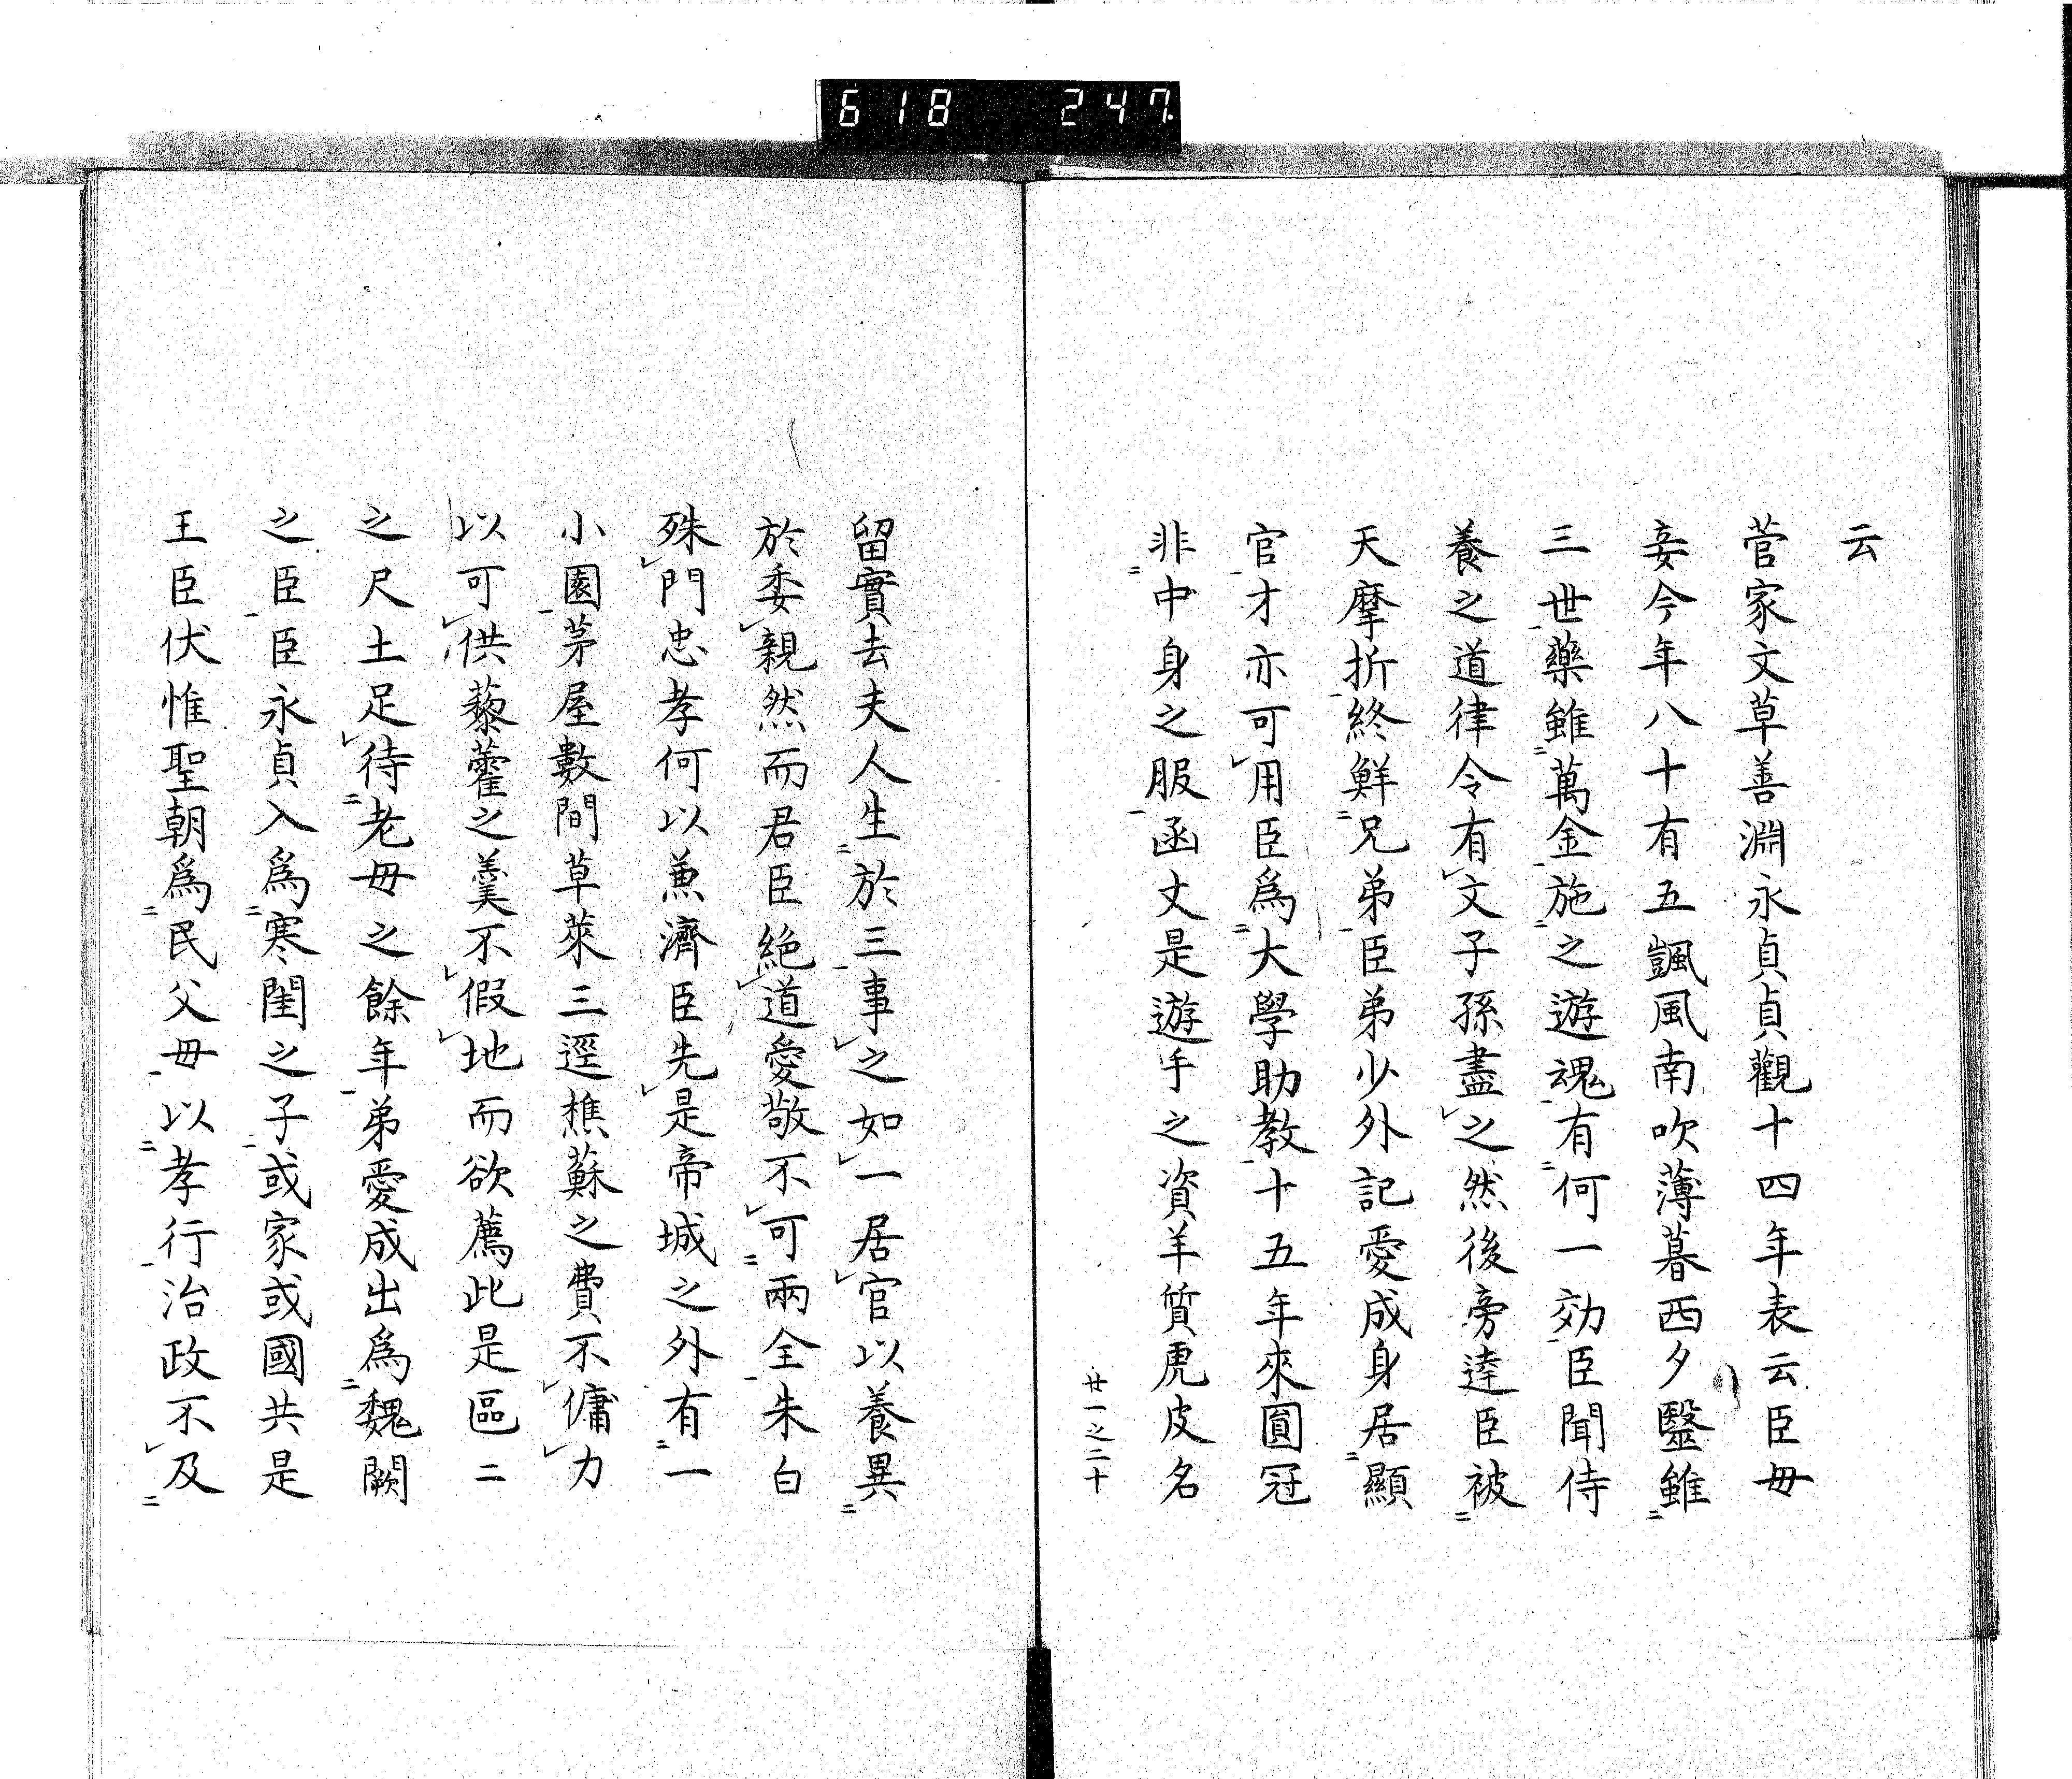 618 247.
云
菅家文草善淵永貞貞觀十四年表云臣毋
妾今年八十有五颽風南吹薄暮西夕毉雖
三世藥雖萬金施之遊魂有何一効臣聞侍
養之道律令有文子孫盡之然後旁逹臣被
天摩折終鮮兄弟臣弟少外記愛成身居顯
官才亦可用臣爲大學助教十五年來圓冠
非中身之服函丈是遊手之資羊質虎皮名
廿一之二十
留實去夫人生於三事之如一居官以養異
於委親然而君臣絶道愛敬不可兩全朱白
殊門忠孝何以兼濟臣先是帝城之外有一
小園茅屋數間草萊三逕樵蘇之費不傭力
以可供藜藿之羹不假地而欲薦此是區二
之尺土足待老毋之餘年弟愛成出爲魏闕
之臣臣永貞入爲寒閨之子或家或國共是
王臣伏惟聖朝爲民父毋以孝行治政不及